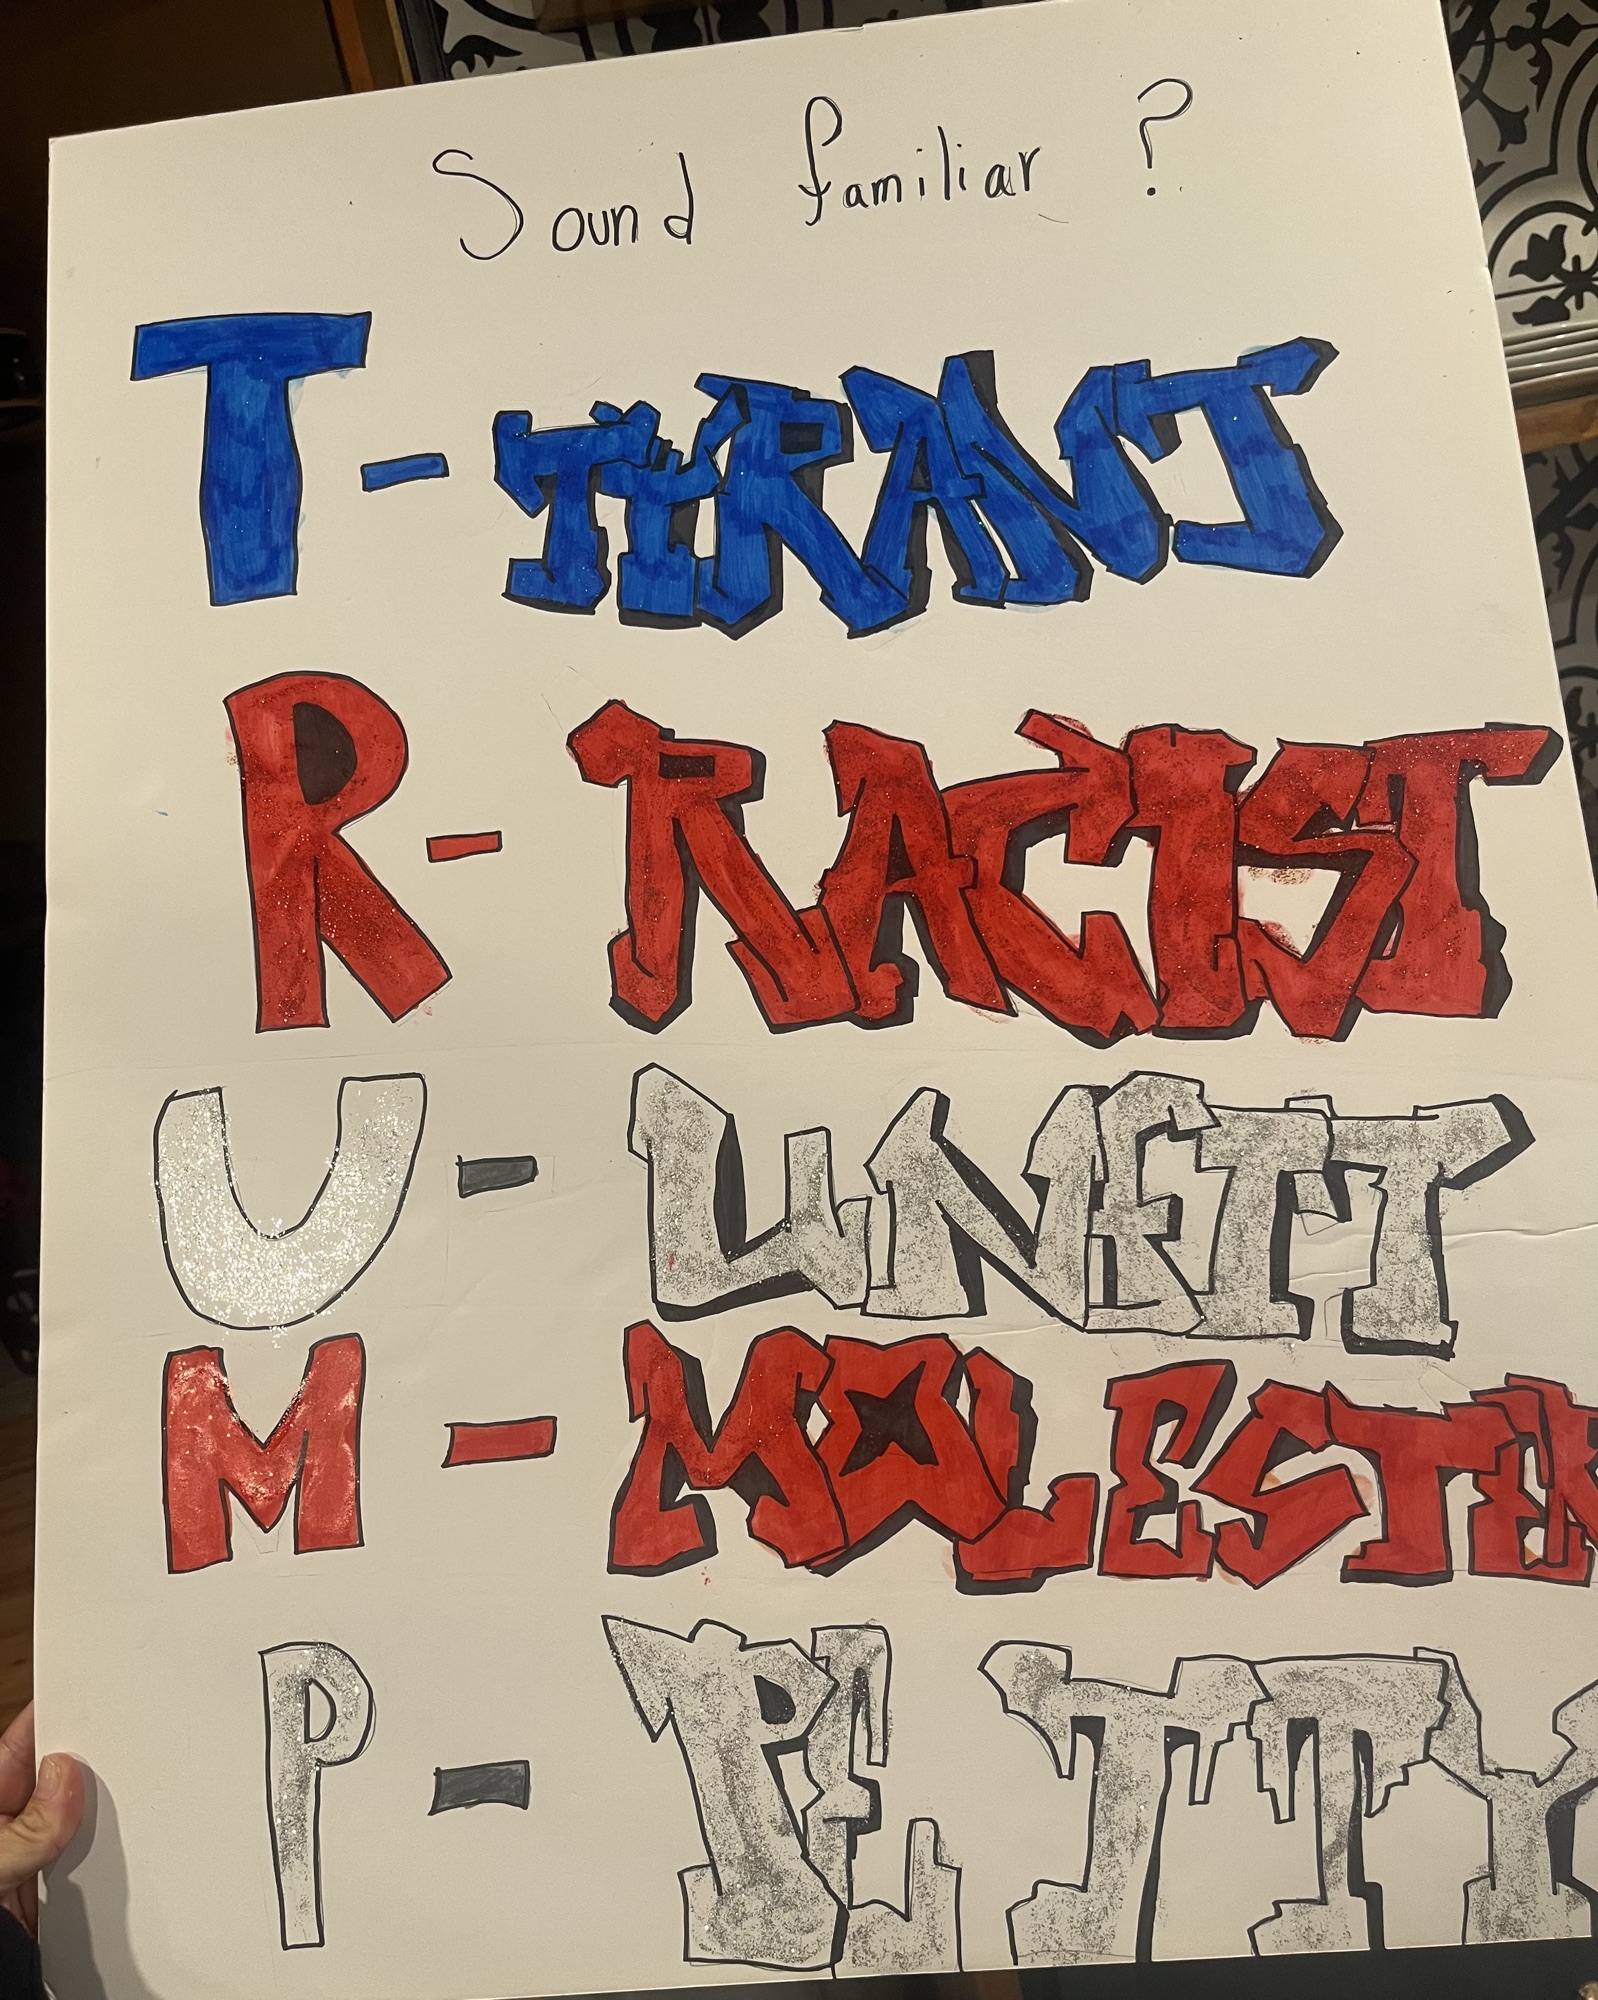 Sound familiar ?
T - TYRANT
R - RACIST
U - UNFIT
M - MOLESTER
P - PETTY